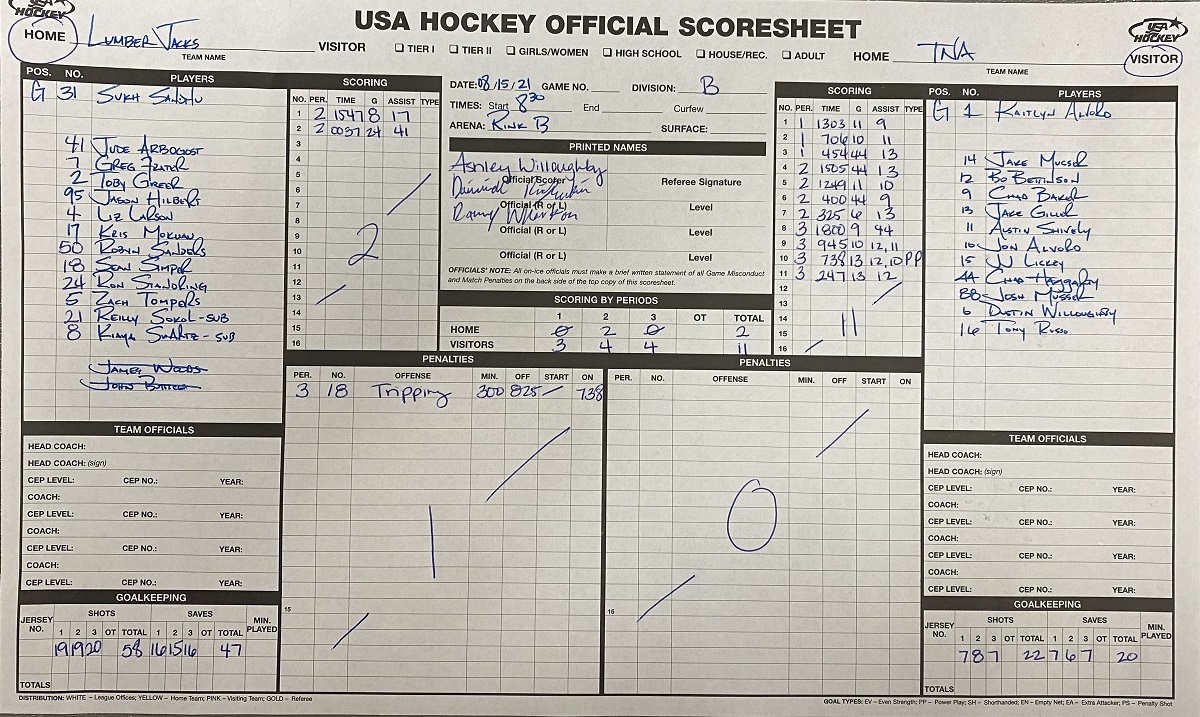 USA HOCKEY OFFICIAL SCORESHEET
USA HOCKEY
HOME LUMBER JACKS VISITOR
TEAM NAME
☐ TIER I ☐ TIER II ☐ GIRLS/WOMEN ☐ HIGH SCHOOL ☐ HOUSE/REC. ☐ ADULT
HOME TNA VISITOR
TEAM NAME
USA HOCKEY
POS. NO. PLAYERS
G 31 SUKH SANDHU
41 JUDE ARBOGOST
7 GREG FRATER
2 TOBY GREER
95 JASON HILBERT
4 LIZ LARSON
17 KRIS MOKUAU
50 ROBYN SANDERS
18 SEAN SIMPER
24 RON STANDRING
5 ZACH TOMPERS
21 REILLY SOKOL-SUB
8 KIANA SWARTZ-SUB
JAMES WOODS
JOHN
SCORING
NO. PER. TIME G ASSIST TYPE
1 2 1547 8 17
2 2 0037 24 41
3
4
5
6
7
8
9
10
11
12
13
14
15
16
2
DATE: 08/15/21 GAME NO. DIVISION: B
TIMES: Start 8:30 End Curfew
ARENA: RINK B SURFACE:
PRINTED NAMES
Ashley Willoughby
Official Scorer Referee Signature
Official (R or L) Level
Danny Wharton
Official (R or L) Level
Official (R or L) Level
OFFICIALS' NOTE: All on-ice officials must make a brief written statement of all Game Misconduct
and Match Penalties on the back side of the top copy of this scoresheet.
SCORING BY PERIODS
1 2 3 OT TOTAL
HOME 0 2 0 2
VISITORS 3 4 4 11
SCORING
NO. PER. TIME G ASSIST TYPE
1 1 1303 11 9
2 1 706 10 11
3 1 454 44 13
4 2 1505 44 13
5 2 1249 11 10
6 2 400 44 9
7 2 325 6 13
8 3 1800 9 44
9 3 945 10 12,11
10 3 738 13 12,10 PP
11 3 247 13 12
12
13
14
15
16
11
POS. NO. PLAYERS
G 1 KAITLYN ALVORO
14 JAKE MUSSER
12 BO BETTINSON
9 CHAD BAKER
13 JAKE GILLER
11 AUSTIN SHIVELY
10 JON ALVORO
15 JJ LICKEY
44 CHAD HAGGARTY
88 JOSH MUSSER
6 DUSTIN WILLOUGHBY
16 TONY RUSSO
PENALTIES
PER. NO. OFFENSE MIN. OFF START ON
3 18 Tripping 300 825 738
1
15
PENALTIES
PER. NO. OFFENSE MIN. OFF START ON
0
15
TEAM OFFICIALS
HEAD COACH:
HEAD COACH: (sign)
CEP LEVEL: CEP NO.: YEAR:
COACH:
CEP LEVEL: CEP NO.: YEAR:
COACH:
CEP LEVEL: CEP NO.: YEAR:
COACH:
CEP LEVEL: CEP NO.: YEAR:
GOALKEEPING
JERSEY NO. SHOTS SAVES MIN. PLAYED
1 2 3 OT TOTAL 1 2 3 OT TOTAL
19 19 20 58 16 15 16 47
TOTALS
TEAM OFFICIALS
HEAD COACH:
HEAD COACH: (sign)
CEP LEVEL: CEP NO.: YEAR:
COACH:
CEP LEVEL: CEP NO.: YEAR:
COACH:
CEP LEVEL: CEP NO.: YEAR:
COACH:
CEP LEVEL: CEP NO.: YEAR:
GOALKEEPING
JERSEY NO. SHOTS SAVES MIN. PLAYED
1 2 3 OT TOTAL 1 2 3 OT TOTAL
7 8 7 22 7 6 7 20
TOTALS
DISTRIBUTION: WHITE – League Offices; YELLOW – Home Team; PINK – Visiting Team; GOLD – Referee
GOAL TYPES: EV – Even Strength; PP – Power Play; SH – Shorthanded; EN – Empty Net; EA – Extra Attacker; PS – Penalty Shot